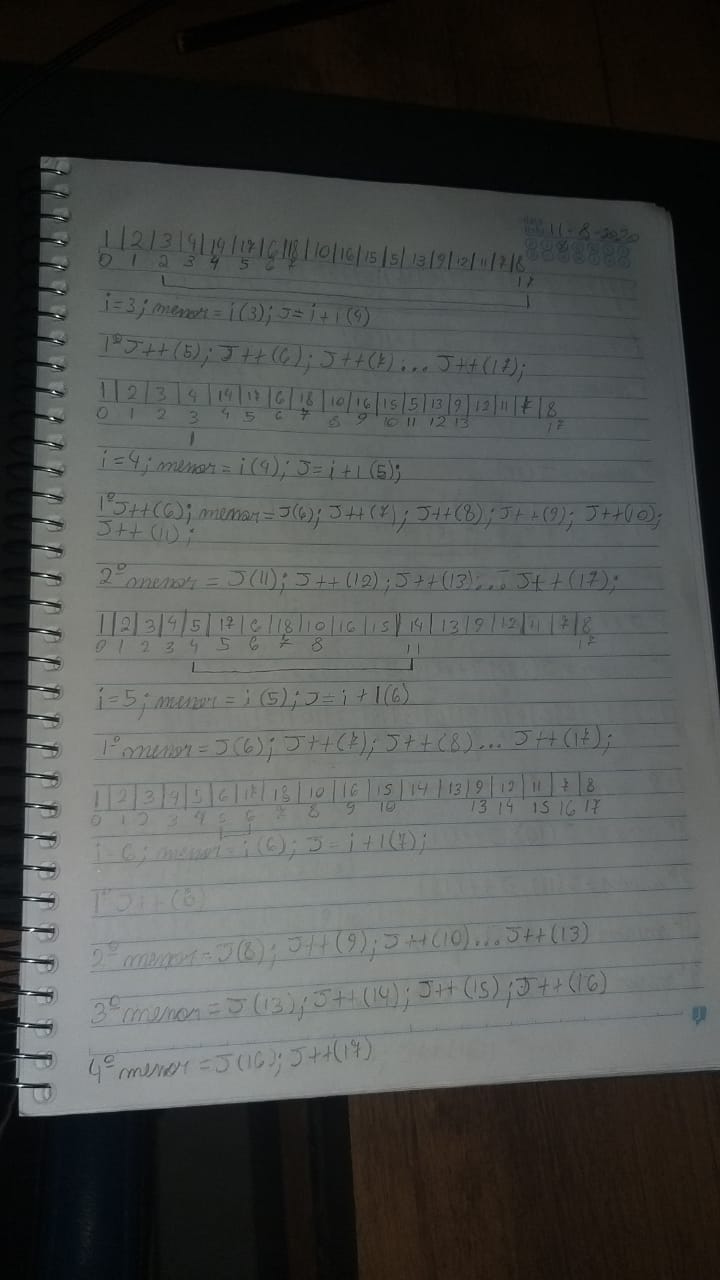 11-8-2020
1|2|3|4|14|17|6|18|10|16|15|5|13|9|12|11|7|8
0 1 2 3 4 5 6 7 17
i=3; menor=i(3); J=i+1(4)
1º J++(5); J++(6); J++(7)... J++(17);
1|2|3|4|14|17|6|18|10|16|15|5|13|9|12|11|7|8
0 1 2 3 4 5 6 7 8 9 10 11 12 13 17
i=4; menor=i(4); J=i+1(5);
1º J++(6); menor=J(6); J++(7); J++(8); J++(9); J++(10);
J++(11);
2º menor=J(11); J++(12); J++(13);... J++(17);
1|2|3|4|5|17|6|18|10|16|15|14|13|9|12|11|7|8
0 1 2 3 4 5 6 7 8 11 17
i=5; menor=i(5); J=i+1(6)
1º menor=J(6); J++(7); J++(8)... J++(17);
1|2|3|4|5|6|17|18|10|16|15|14|13|9|12|11|7|8
0 1 2 3 4 5 6 7 8 9 10 13 14 15 16 17
i=6; menor=i(6); J=i+1(7);
1º J++(8)
2º menor=J(8); J++(9); J++(10)...J++(13)
3º menor=J(13); J++(14); J++(15); J++(16)
4º menor=J(16); J++(17)